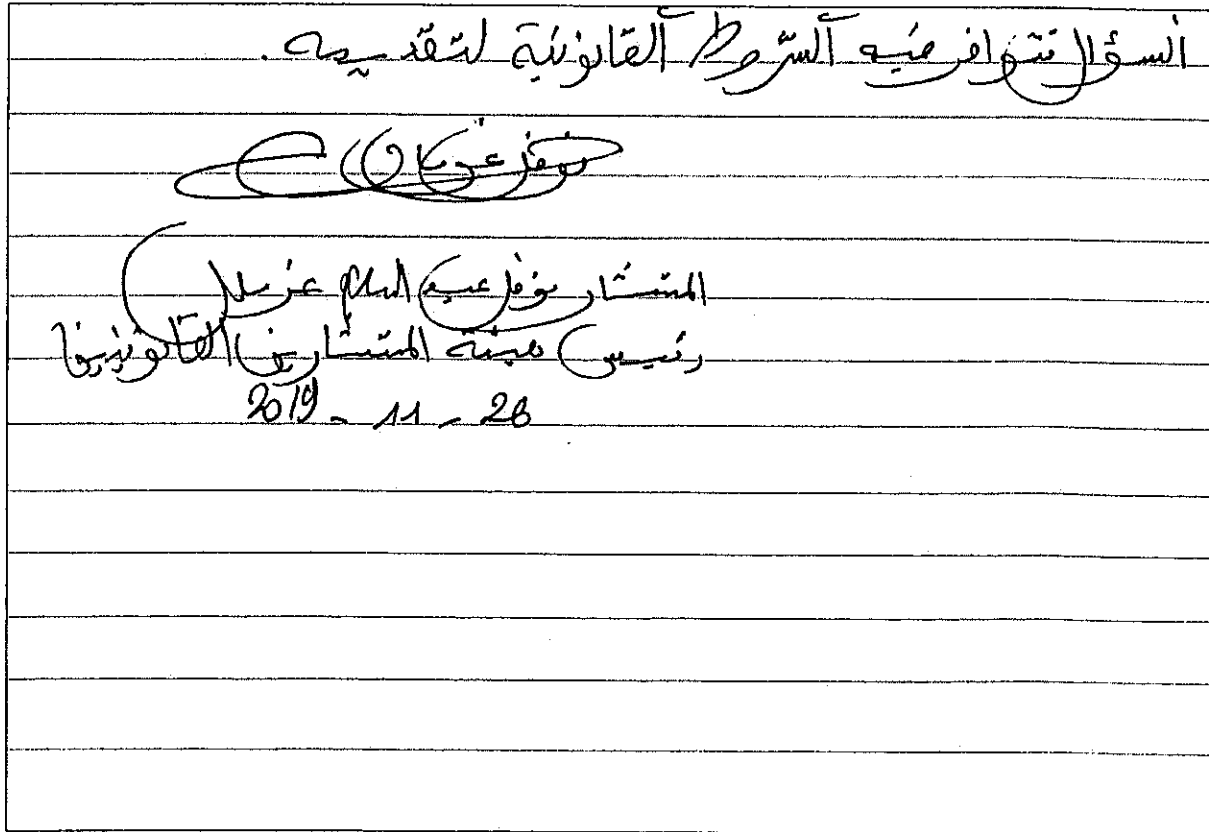 السؤال تتوافر فيه الشروط القانونية لتقديمه.
نوفل
المستشار نوفل عبد السلام غربال
رئيس هيئة المستشارين القانونيين
26 - 11 - 2019